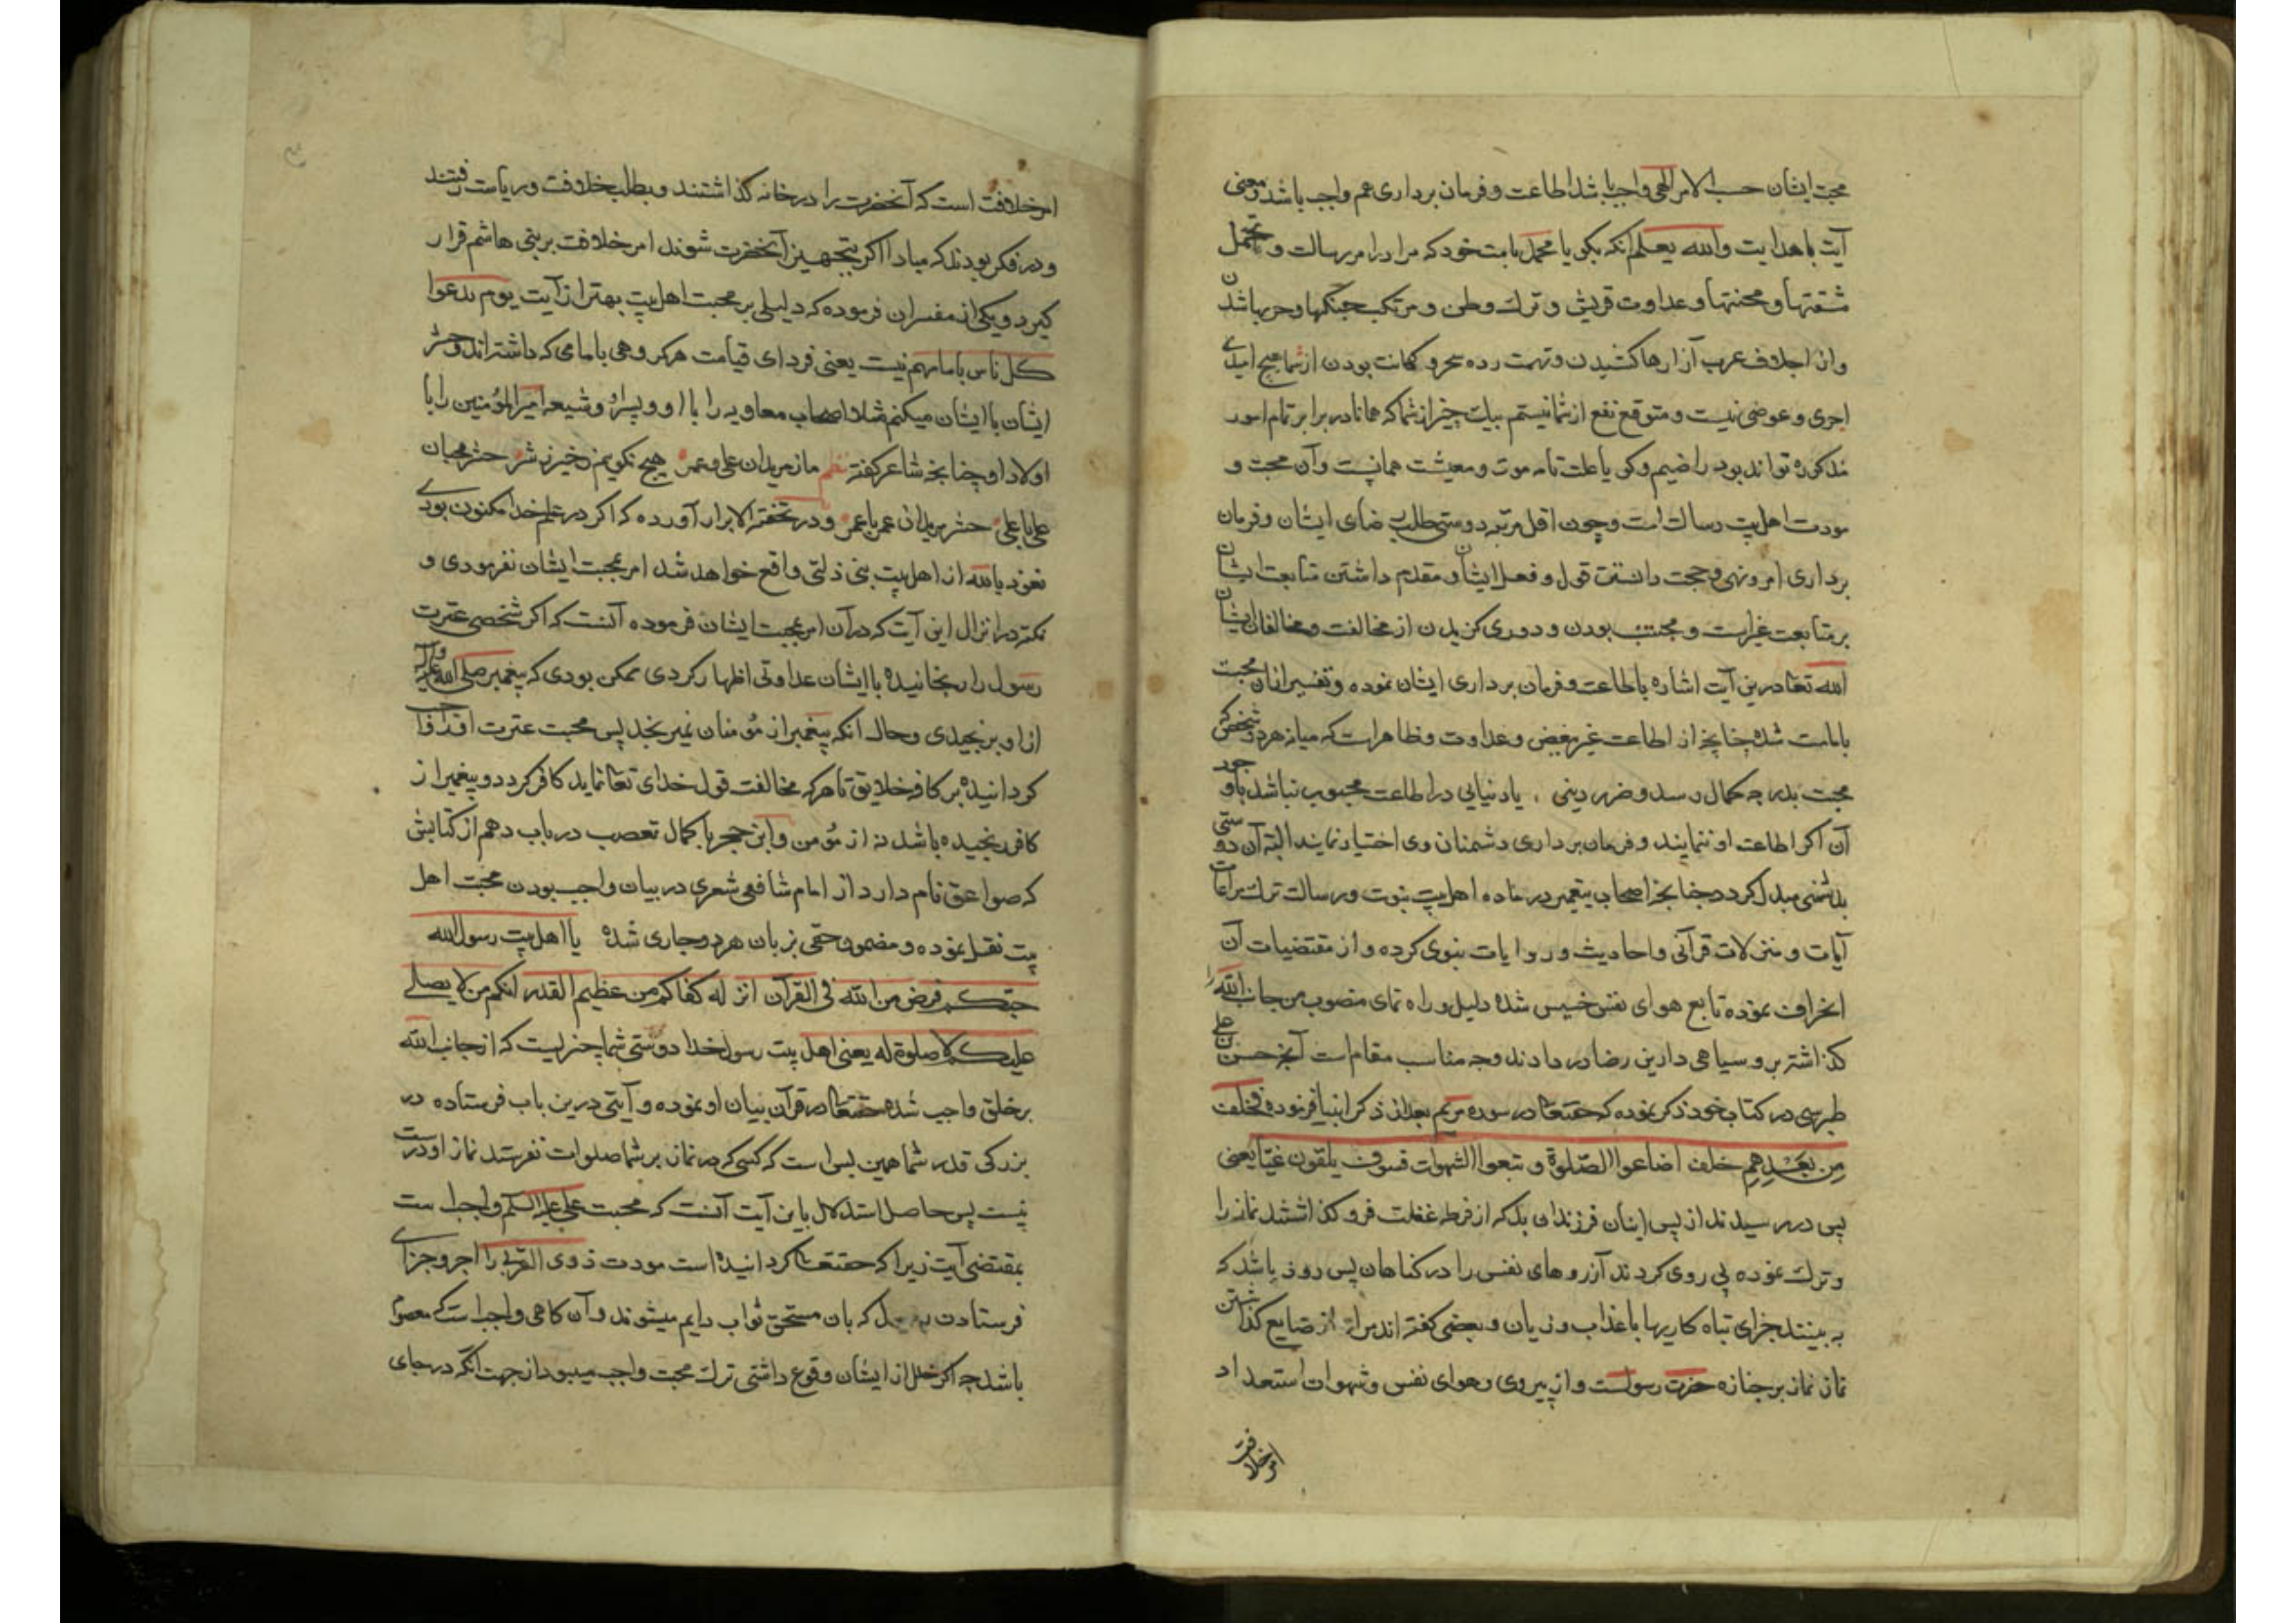 محبت ایشان حسب الامر الهی واجب باشد اطاعت و فرمان برداری هم واجب باشد و معنی
آیت با هدایت والله یعلم آنکه بکو یا محمد بامت خود که مرا در امر رسالت و تحمل
مشقتها و محنتها و عداوت قریش و ترک وطن و مرتکب جنکها و حربها شدن
و از اجلاف عرب آزارها کشیدن و تهمت زده سحر و کهانت بودن از شما هیچ امید
اجری و عوضی نیست و متوقع نفع از شما نیستم بیک چیز از شما که همانا در برابر تمام امور
مذکوره تواند بود راضیم و کویا علت تامه موت و معیشت همانست و آن محبت و
مودت اهل بیت رسالت است و چون اقل مرتبه دوستی طلب رضای ایشان و فرمان
برداری امر و نهی و حجت دانستن قول و فعل ایشان و مقدم داشتن متابعت ایشان
بر متابعت غیر است و مجتنب بودن و دوری کزیدن از مخالفت و مخالفان ایشان
الله تعا درین آیت اشاره باطاعت و فرمان برداری ایشان نموده و تفسیر از آن محبت
بامامت شده چنانچه از اطاعت غیر بغض و عداوت و ظاهر است که میانه هر دو شخص که
محبت بدرجه کمال رسد و ضرر دینی یا دنیایی در اطاعت محبوب نباشد با وجود
آن اکر اطاعت او ننمایند و فرمان برداری دشمنان وی اختیار نمایند البته آن دوستی
بدشمنی مبدل کردد چنانچه اصحاب پیغمبر در ماده اهل بیت نبوت و رسالت ترک مراعات
آیات و منزلات قرآنی و احادیث و روایات نبوی کرده و از مقتضیات آن
انحراف نموده تابع هوای نفس خسیس شده دلیل و راه نمای منصوب من جانب الله را
کذاشته برو سیاهی دارین رضا در دادند وجه مناسب مقام است آنچه حسن بن علی
طبرسی در کتاب خود ذکر نموده که حقتعا در سوره مریم بعد از ذکر انبیا فرموده فخلف
من بعدهم خلف اضاعوا الصلوة و تبعوا الشهوات فسوف یلقون غیا یعنی
پس در رسیدند از پس ایشان فرزندان بد که از فرط غفلت فرو کذاشتند نماز را
و ترک نموده پی روی کردند آرزوهای نفس را در کناهان پس زود باشد که
به بینند جزای تباه کاریها با عذاب و زیان و بعضی کفته اند مراد از ضایع کذاشتن
نماز نماز بر جنازه حضرت رسولست و از پیروی و هوای نفس و شهوات استعداد
امر خلافت
امر خلافت است که آنحضرت را در خانه کذاشتند و بطلب خلافت و ریاست رفتند
و در فکر بودند که مبادا اکر بتجهیز آنحضرت شوند امر خلافت بر بنی هاشم قرار
کیرد و یکی از مفسران فرموده که دلیلی بر محبت اهل بیت بهتر از آیت یوم ندعوا
کل ناس بامامهم نیست یعنی فردای قیامت هر کروهی با امامی که داشته اند و حشر
ایشان با ایشان میکنم مثلا اصحاب معاویه را با او و پسر او و شیعه امیرالمؤمنین را با
اولاد او چنانچه شاعر کفته نظم ما ز مریدان علی و عمر هیچ نکوییم ز خیر و ز شر حشر محبان
علی با علی حشر مریدان عمر با عمر و در تحفة الابرار آورده که اکر در علم خدا مکنون بودی
نعوذ بالله از اهل بیت نبی ذلتی واقع خواهد شد امر بمحبت ایشان نفرمودی و
نکته در انزال این آیت که در آن امر بمحبت ایشان فرموده آنست که اکر شخصی عترت
رسول را رنجانیده با ایشان عداوتی اظهار کردی ممکن بودی که پیغمبر صلی الله علیه و آله
از او برنجیدی و حال آنکه پیغمبر از مؤمنان نمیرنجد پس محبت عترت او را
کردانیده بر کافه خلایق تا هر که مخالفت قول خدای تعا نماید کافر کردد و پیغمبر از
کافر رنجیده باشد نه از مؤمن و ابن حجر با کمال تعصب در باب دهم از کتابش
که صواعق نام دارد از امام شافعی شعری در بیان واجب بودن محبت اهل
بیت نقل نموده و مضمون حقی بر زبان هر دو جاری شده یا اهل بیت رسول الله
حبکم فرض من الله فی القرآن انزله کفاکم من عظیم القدر انکم من لا یصلی
علیکم لا صلوة له یعنی اهل بیت رسول خدا دوستی شما چیزیست که از جانب الله
بر خلق واجب شده حقتعا در قرآن بیان او نموده و آیتی درین باب فرستاده در
بزرکی قدر شما همین بس است که کسی که در نماز بر شما صلوات نفرستد نماز او درست
نیست پس حاصل استدلال باین آیت آنست که محبت علی علیه السلم واجب است
بمقتضی آیت زیرا که حقتعا کردانیده است مودت ذوی القربی را اجر و جزای
فرستادن رسول که بآن مستحق ثواب دایم میشوند و آن کاهی واجب است که معصوم
باشد چه اکر خلل از ایشان وقوع داشتی ترک محبت واجب میبود از جهت آنکه در جای